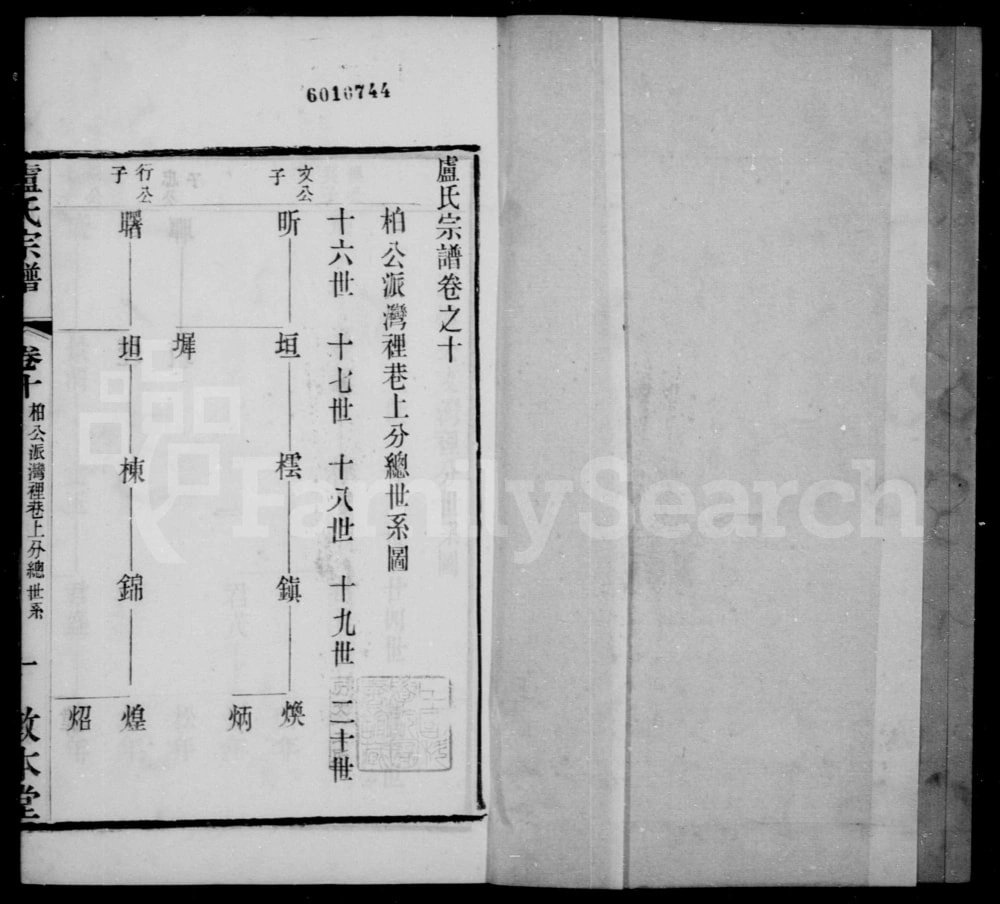 6010744
盧氏宗譜卷之十
柏公派灣裡巷上分總世系圖
十六世 十七世 十八世 十九世 二十世
文公子
昕 垣 橒 鎮 煥
炳
墀
行公子
曙 坦 棟 錦 煌
炤
盧氏宗譜 卷十 柏公派灣裡巷上分總世系 一 敦本堂
FamilySearch